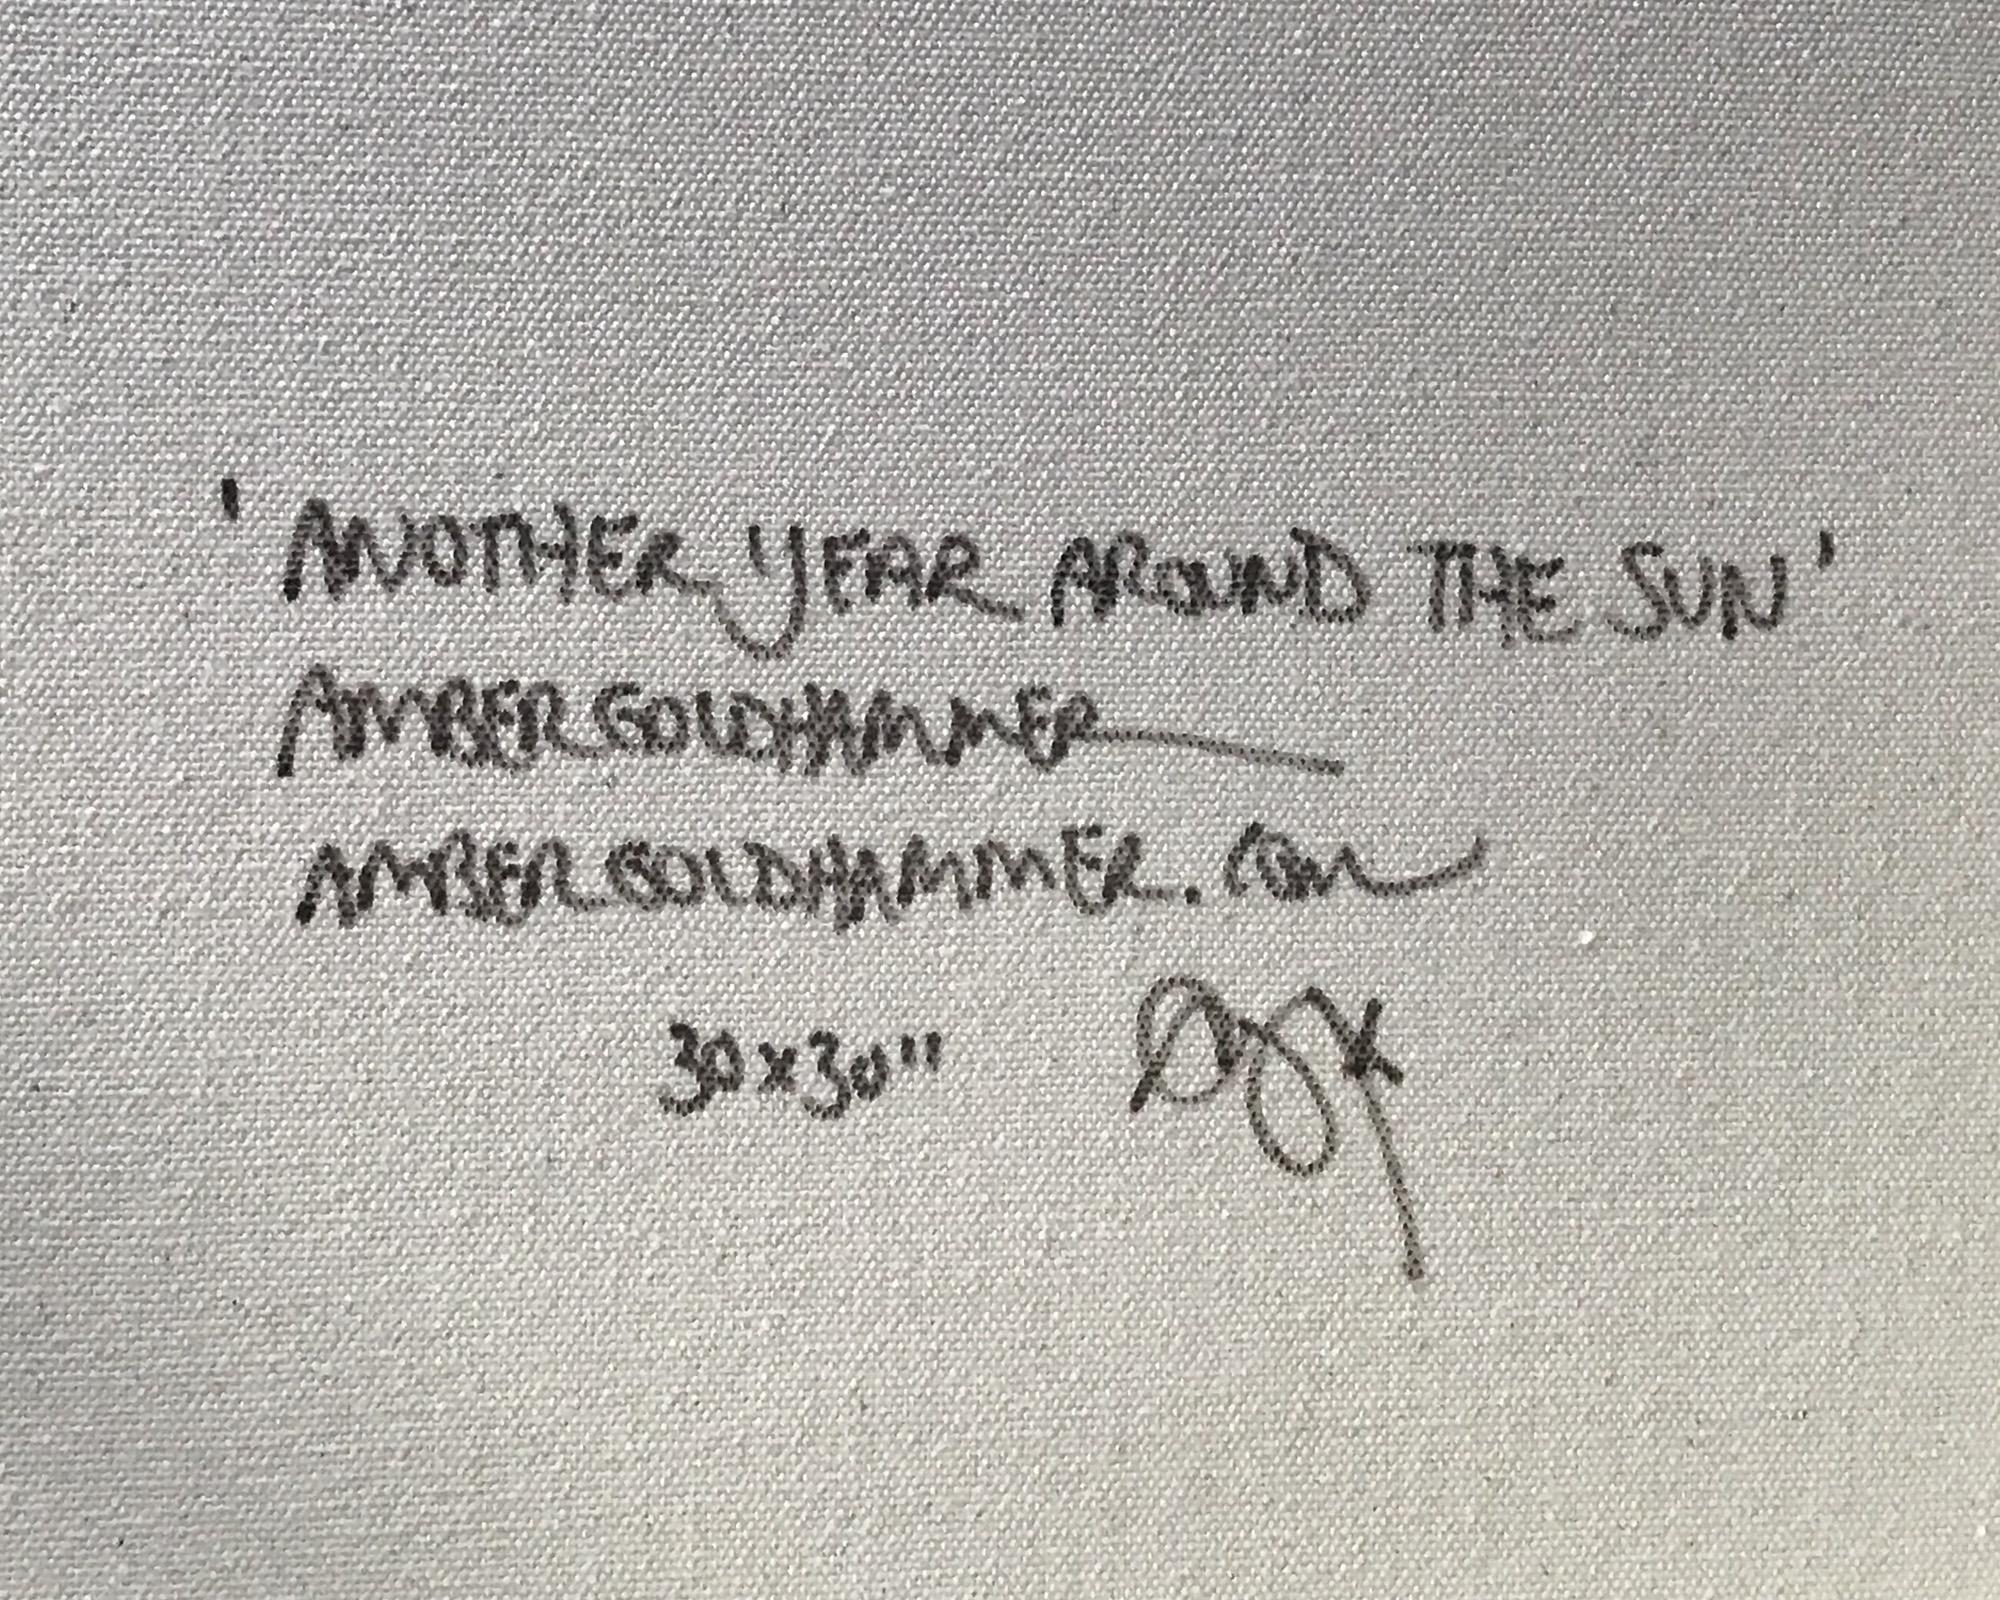 'ANOTHER YEAR AROUND THE SUN'
AMBER GOLDHAMMER
AMBERGOLDHAMMER.COM
30x30"